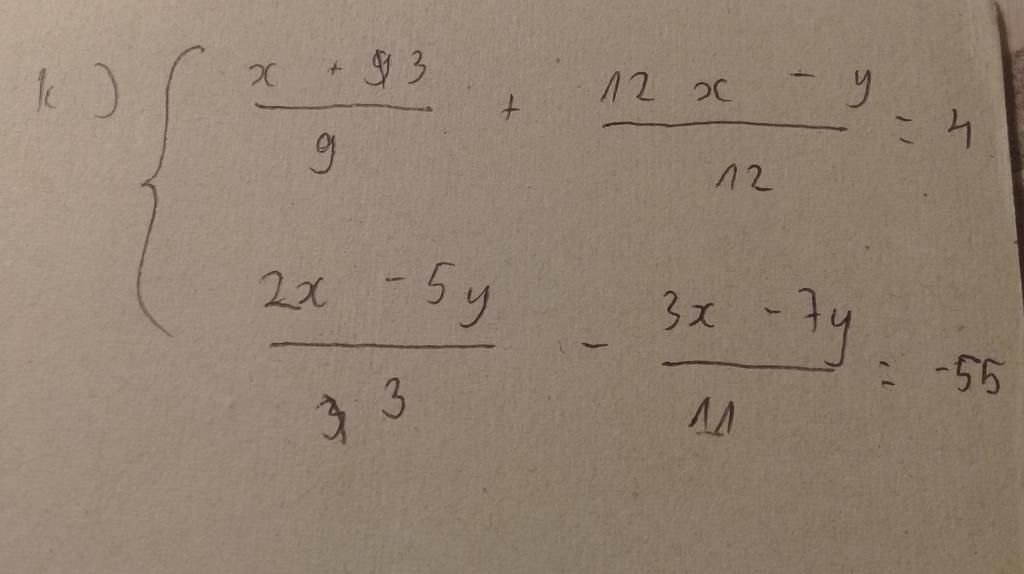 k) { (x + 3)/9 + (12x - y)/12 = 4
(2x - 5y)/3 - (3x - 7y)/11 = -55